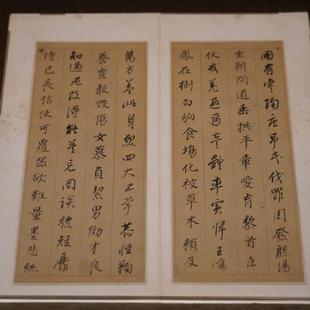 國有虞陶唐弔民伐罪周發殷湯
坐朝問道垂拱平章愛育黎首臣
伏戎羌遐邇壹體率賓歸王鳴
鳳在樹白駒食場化被草木賴及
萬方蓋此身髮四大五常恭惟鞠
養豈敢毀傷女慕貞絜男效才良
知過必改得能莫忘罔談彼短靡
恃己長信使可覆器欲難量墨悲絲